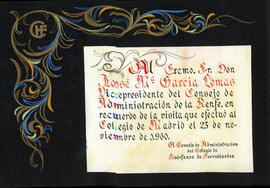 Al Excmo. Sr. Don
José Mª García Lomas
Vicepresidente del Consejo de
Administración de la Renfe, en
recuerdo de la visita que efectuó al
Colegio de Madrid el 25 de no-
viembre de 1960.
El Consejo de Administración
del Colegio de
Huérfanos de Ferroviarios